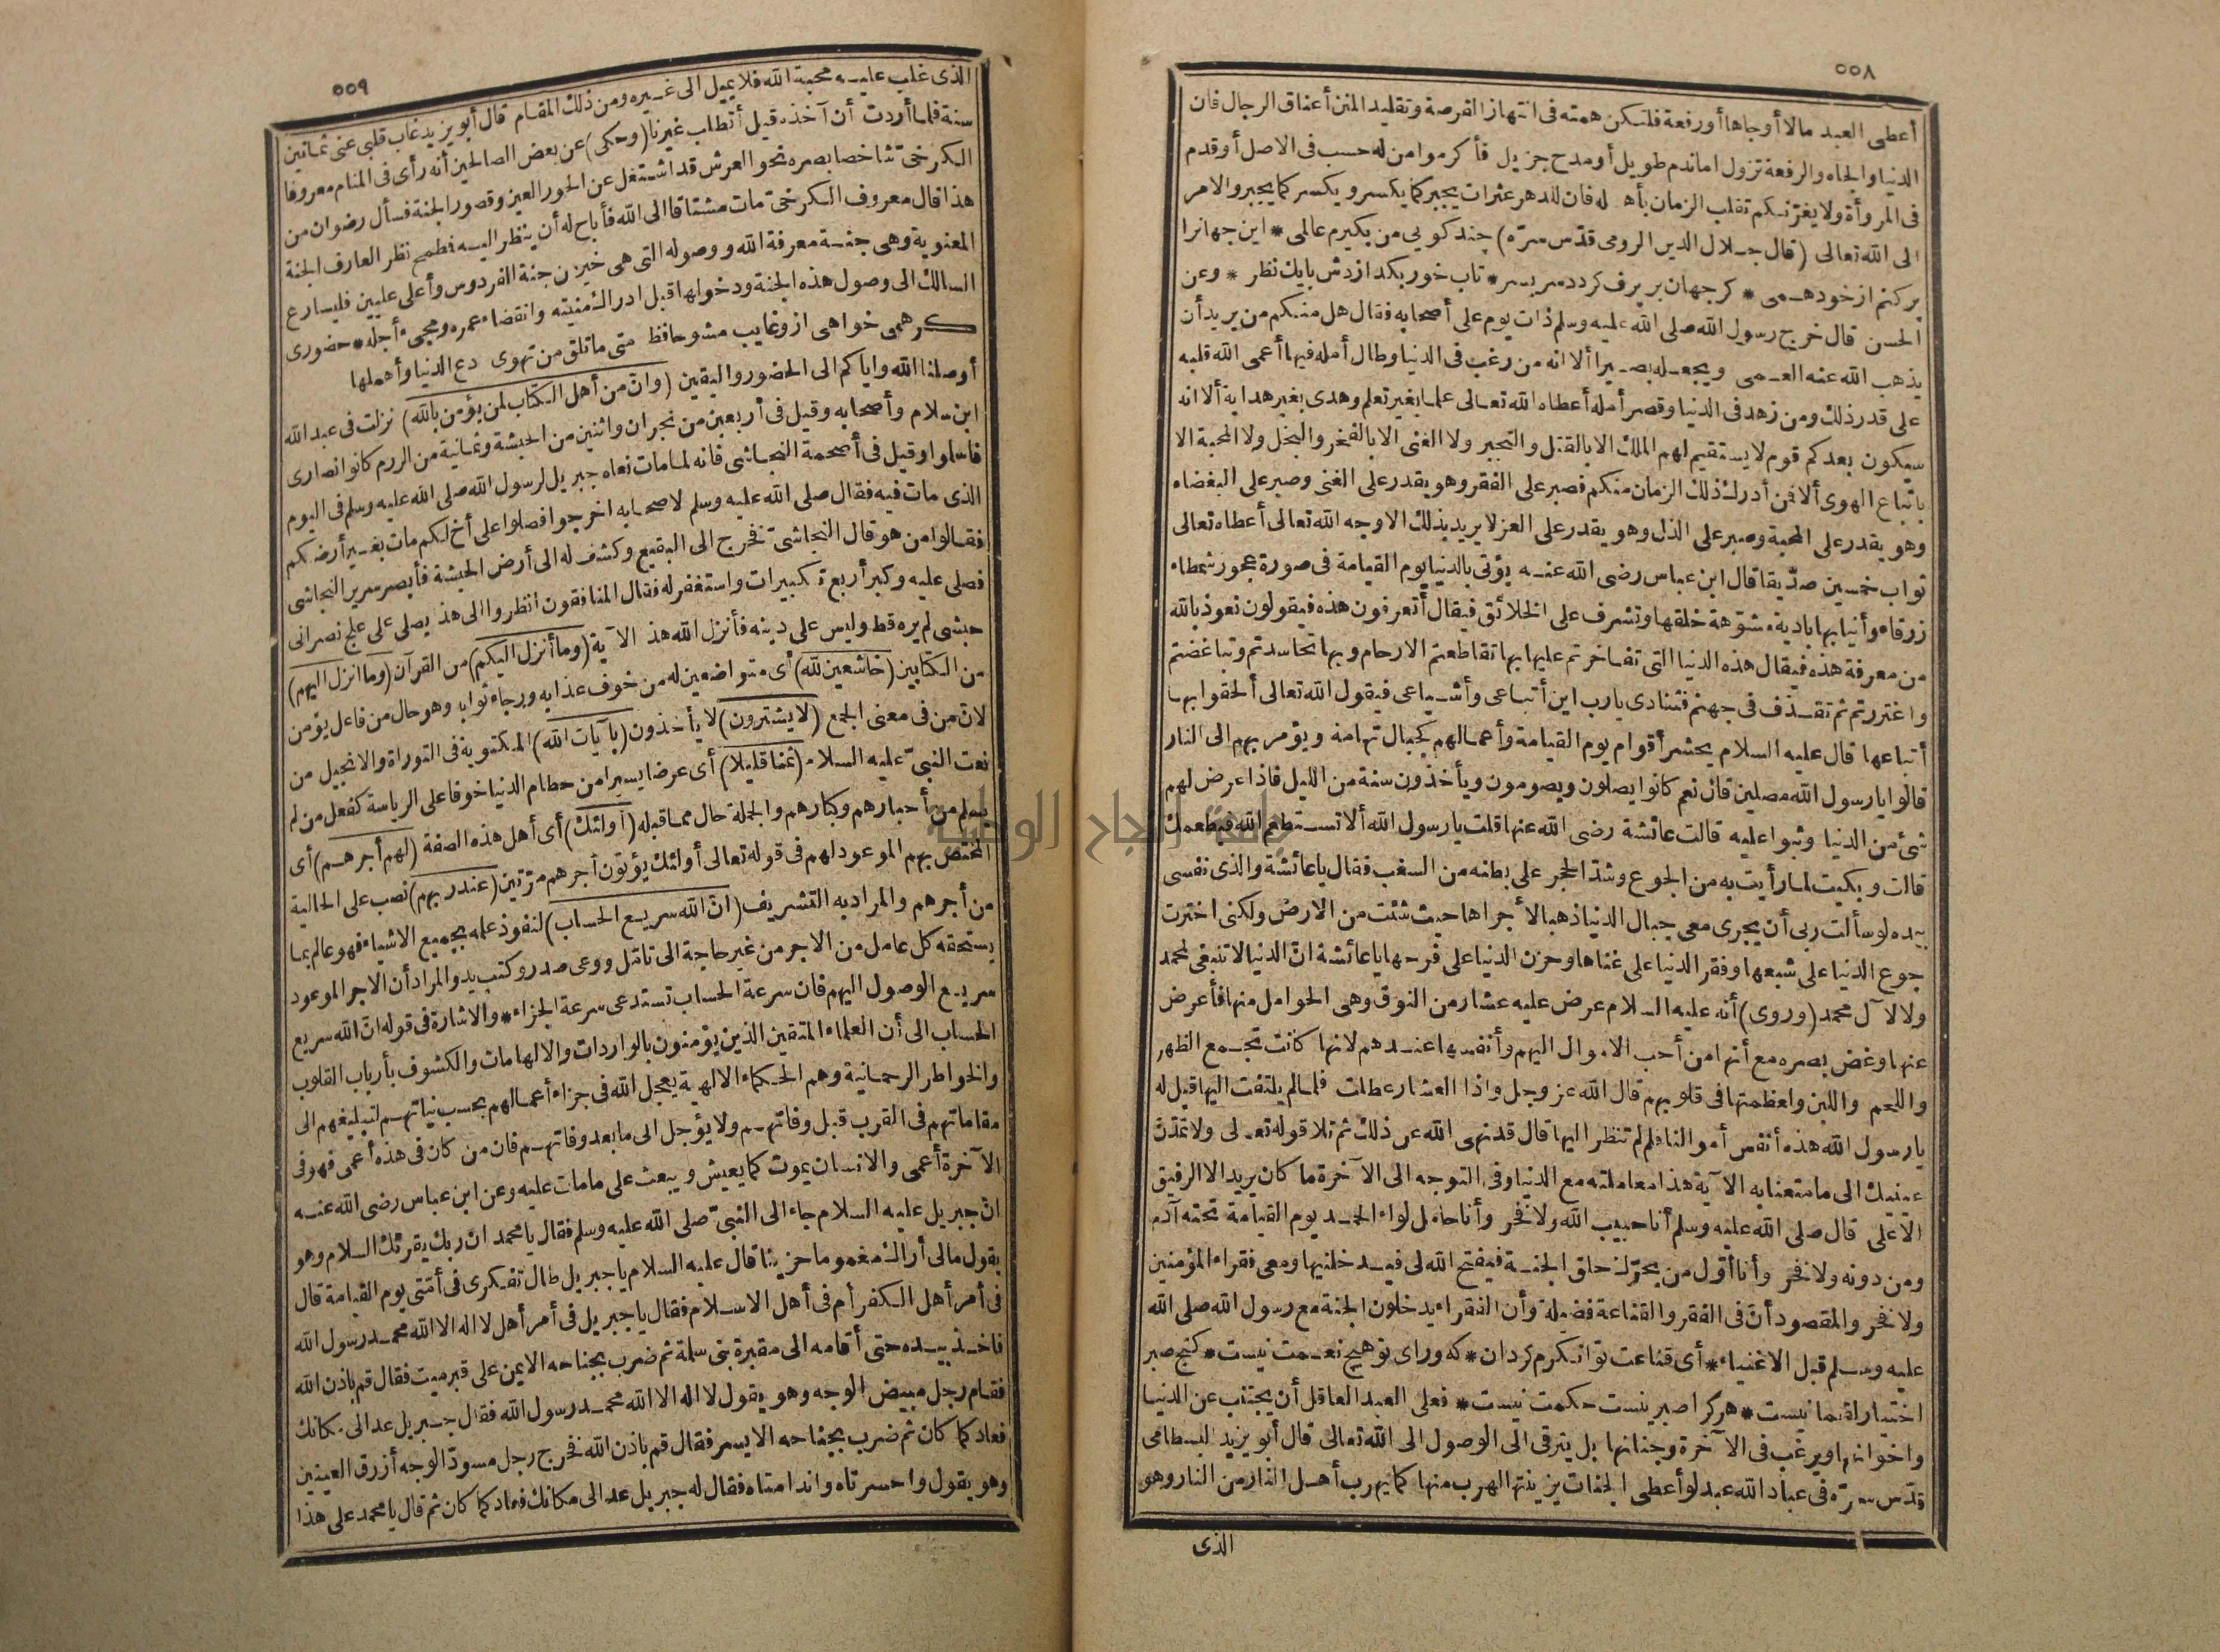 ٥٥٨
أعطى العبد مالا أو جاها أو رفعة فلتكن همته فى انتهاز الفرصة وتقليد المنن أعناق الرجال فان
الدنيا والجاه والرفعة تزول اماندم طويل أو مدح جزيل فأكرموا من له حسب فى الاصل أو قدم
فى المروأة ولا يغرّنكم تقلب الزمان بأهله فان للدهر عثرات يجبر كما يكسر ويكسر كما يجبر والامر
الى الله تعالى (قال جلال الدين الرومى قدّس سرّه) چند كويى من بكيرم عالمى * اين جهانرا
پركنم از خود همى * كر جهان پر برف كردد سر بسر * تاب خور بكدازدش بايك نظر * وعن
الحسن قال خرج رسول الله صلى الله عليه وسلم ذات يوم على أصحابه فقال هل منكم من يريد أن
يذهب الله عنه العمى ويجعله بصيرا ألا انه من رغب فى الدنيا وطال أمله فيها أعمى الله قلبه
على قدر ذلك ومن زهد فى الدنيا وقصر أمله أعطاه الله تعالى علما بغير تعلم وهدى بغير هداية ألا انه
سيكون بعدكم قوم لا يستقيم لهم الملك الا بالقتل والتجبر ولا الغنى الا بالفخر والبخل ولا المحبة الا
باتباع الهوى ألا فمن أدرك ذلك الزمان منكم فصبر على الفقر وهو يقدر على الغنى وصبر على البغضاء
وهو يقدر على المحبة وصبر على الذل وهو يقدر على العز لا يريد بذلك الا وجه الله تعالى أعطاه تعالى
ثواب خمسين صدّيقا قال ابن عباس رضى الله عنه يؤتى بالدنيا يوم القيامة فى صورة عجوز شمطاء
زرقاء وأنيابها بادية مشوّهة خلقها وتشرف على الخلائق فيقال أتعرفون هذه فيقولون نعوذ بالله
من معرفة هذه فيقال هذه الدنيا التى تفاخرتم عليها بها تقاطعتم الارحام وبها تحاسدتم وتباغضتم
واغتررتم ثم تقذف فى جهنم فتنادى يارب اين أتباعى وأشياعى فيقول الله تعالى ألحقوا بها
أتباعها قال عليه السلام يحشر أقوام يوم القيامة وأعمالهم كجبال تهامة ويؤمر بهم الى النار
قالوا يارسول الله مصلين قال نعم كانوا يصلون ويصومون ويأخذون سنة من الليل فاذا عرض لهم
شئ من الدنيا وثبوا عليه قالت عائشة رضى الله عنها قلت يارسول الله ألا تستطعم الله فيطعمك
قالت وبكيت لما رأيت به من الجوع وشدّ الحجر على بطنه من السغب فقال ياعائشة والذى نفسى
بيده لو سألت ربى أن يجرى معى جبال الدنيا ذهبا لأجراها حيث شئت من الارض ولكنى اخترت
جوع الدنيا على شبعها وفقر الدنيا على غناها وحزن الدنيا على فرحها ياعائشة انّ الدنيا لا تنبغى لمحمد
ولا لآل محمد (وروى) أنه عليه السلام عرض عليه عشار من النوق وهى الحوامل منها فأعرض
عنها وغض بصره مع أنها من أحب الاموال اليهم وأنفسها عندهم لانها كانت تجمع الظهر
واللحم واللبن ولعظمتها فى قلوبهم قال الله عز وجل واذا العشار عطلت فلما لم يلتفت اليها قيل له
يارسول الله هذه أنفس أموالنا فلم لم تنظر اليها قال قد نهى الله عن ذلك ثم تلا قوله تعالى ولا تمدّنّ
عينيك الى ما متعنا به الآية هذا معاملته مع الدنيا وفى التوجه الى الآخرة ما كان يريد الا الرفيق
الاعلى قال صلى الله عليه وسلم أنا حبيب الله ولا فخر وأنا حامل لواء الحمد يوم القيامة تحته آدم
ومن دونه ولا فخر وأنا أوّل من يحرّك حلق الجنة فيفتح الله لى فيدخلنيها ومعى فقراء المؤمنين
ولا فخر والمقصود أنّ فى الفقر والقناعة فضيلة وأن الفقراء يدخلون الجنة مع رسول الله صلى الله
عليه وسلم قبل الاغنياء * أى قناعت توانكرم كردان * كه وراى تو هيچ نعمت نيست * كنج صبر
اختيار لقمانست * هر كرا صبر نيست حكمت نيست * فعلى العبد العاقل أن يجتنب عن الدنيا
واخوانها ويرغب فى الآخرة وجنانها بل يترقى الى الوصول الى الله تعالى قال أبو يزيد البسطامى
قدّس سرّه فى عباد الله عبد لو أعطى الجنات بزينتها لهرب منها كما يهرب أهل النار من النار وهو
الذى
٥٥٩
الذى غلب عليه محبة الله فلا يميل الى غيره ومن ذلك المقام قال أبو يزيد غاب قلبى عنى ثمانين
سنة فلما أردت أن آخذه قيل أتطلب غيرنا (وحكى) عن بعض الصالحين أنه رأى فى المنام معروفا
الكرخىّ شاخصا بصره نحو العرش قد اشتغل عن الحور العين وقصور الجنة فسأل رضوان من
هذا قال معروف الكرخىّ مات مشتاقا الى الله فأباح له أن ينظر اليه فطمح نظر العارف الجنة
المعنوية وهى جنة معرفة الله ووصوله التى هى خير من جنة الفردوس وأعلى عليين فليسارع
السالك الى وصول هذه الجنة ودخولها قبل ادراك منيته وانقضاء عمره ومجىء أجله * حضورى
كرهمى خواهى ازو غايب مشو حافظ متى ما تلق من تهوى دع الدنيا وأهملها
أوصلنا الله واياكم الى الحضور واليقين (وانّ من أهل الكتاب لمن يؤمن بالله) نزلت فى عبد الله
ابن سلام وأصحابه وقيل فى أربعين من نجران واثنين من الحبشة وثمانية من الروم كانوا نصارى
فأسلموا وقيل فى أصحمة النجاشى فانه لما مات نعاه جبريل لرسول الله صلى الله عليه وسلم فى اليوم
الذى مات فيه فقال صلى الله عليه وسلم لاصحابه اخرجوا فصلوا على أخ لكم مات بغير أرضكم
فقالوا من هو قال النجاشىّ فخرج الى البقيع وكشف له الى أرض الحبشة فأبصر سرير النجاشى
فصلى عليه وكبر أربع تكبيرات واستغفر له فقال المنافقون انظروا الى هذا يصلى على علج نصرانى
حبشى لم يره قط وليس على دينه فأنزل الله هذه الآية (وما أنزل اليكم) من القرآن (وما انزل اليهم)
من الكتابين (خاشعين لله) أى متواضعين له من خوف عذابه ورجاء ثوابه وهو حال من فاعل يؤمن
لانّ من فى معنى الجمع (لا يشترون) لا يأخذون (بآيات الله) المكتوبة فى التوراة والانجيل من
نعت النبىّ عليه السلام (ثمنا قليلا) أى عرضا يسيرا من حطام الدنيا خوفا على الرياسة كفعل من لم
يسلم من أحبارهم وكبارهم والجملة حال مما قبله (أولئك) أى أهل هذه الصفة (لهم أجرهم) أى
المختص بهم الموعود لهم فى قوله تعالى أولئك يؤتون أجرهم مرّتين (عند ربهم) نصب على الحالية
من أجرهم والمراد به التشريف (انّ الله سريع الحساب) لنفوذ علمه بجميع الاشياء فهو عالم بما
يستحقه كل عامل من الاجر من غير حاجة الى تأمّل ووعى صدر وكتب يد والمراد أن الاجر الموعود
سريع الوصول اليهم فان سرعة الحساب تستدعى سرعة الجزاء * والاشارة فى قوله انّ الله سريع
الحساب الى أن العلماء المتقين الذين يؤمنون بالواردات والالهامات والكشوف بأرباب القلوب
والخواطر الرحمانية وهم الحكماء الالهية يعجل الله فى جزاء أعمالهم بحسب نياتهم لتبليغهم الى
مقاماتهم فى القرب قبل وفاتهم ولا يؤجل الى ما بعد وفاتهم فان من كان فى هذه أعمى فهو فى
الآخرة أعمى والانسان يموت كما يعيش ويبعث على ما مات عليه وعن ابن عباس رضى الله عنه
انّ جبريل عليه السلام جاء الى النبىّ صلى الله عليه وسلم فقال يا محمد انّ ربك يقرئك السلام وهو
يقول مالى أراك مغموما حزينا قال عليه السلام ياجبريل طال تفكرى فى أمّتى يوم القيامة قال
فى أمر أهل الكفر أم فى أهل الاسلام فقال ياجبريل فى أمر أهل لا اله الا الله محمد رسول الله
فأخذ بيده حتى أقامه الى مقبرة بنى سلمة ثم ضرب بجناحه الايمن على قبر ميت فقال قم باذن الله
فقام رجل مبيض الوجه وهو يقول لا اله الا الله محمد رسول الله فقال جبريل عد الى مكانك
فعاد كما كان ثم ضرب بجناحه الايسر فقال قم باذن الله فخرج رجل مسودّ الوجه أزرق العينين
وهو يقول واحسرتاه واندامتاه فقال له جبريل عد الى مكانك فعاد كما كان ثم قال يا محمد على هذا